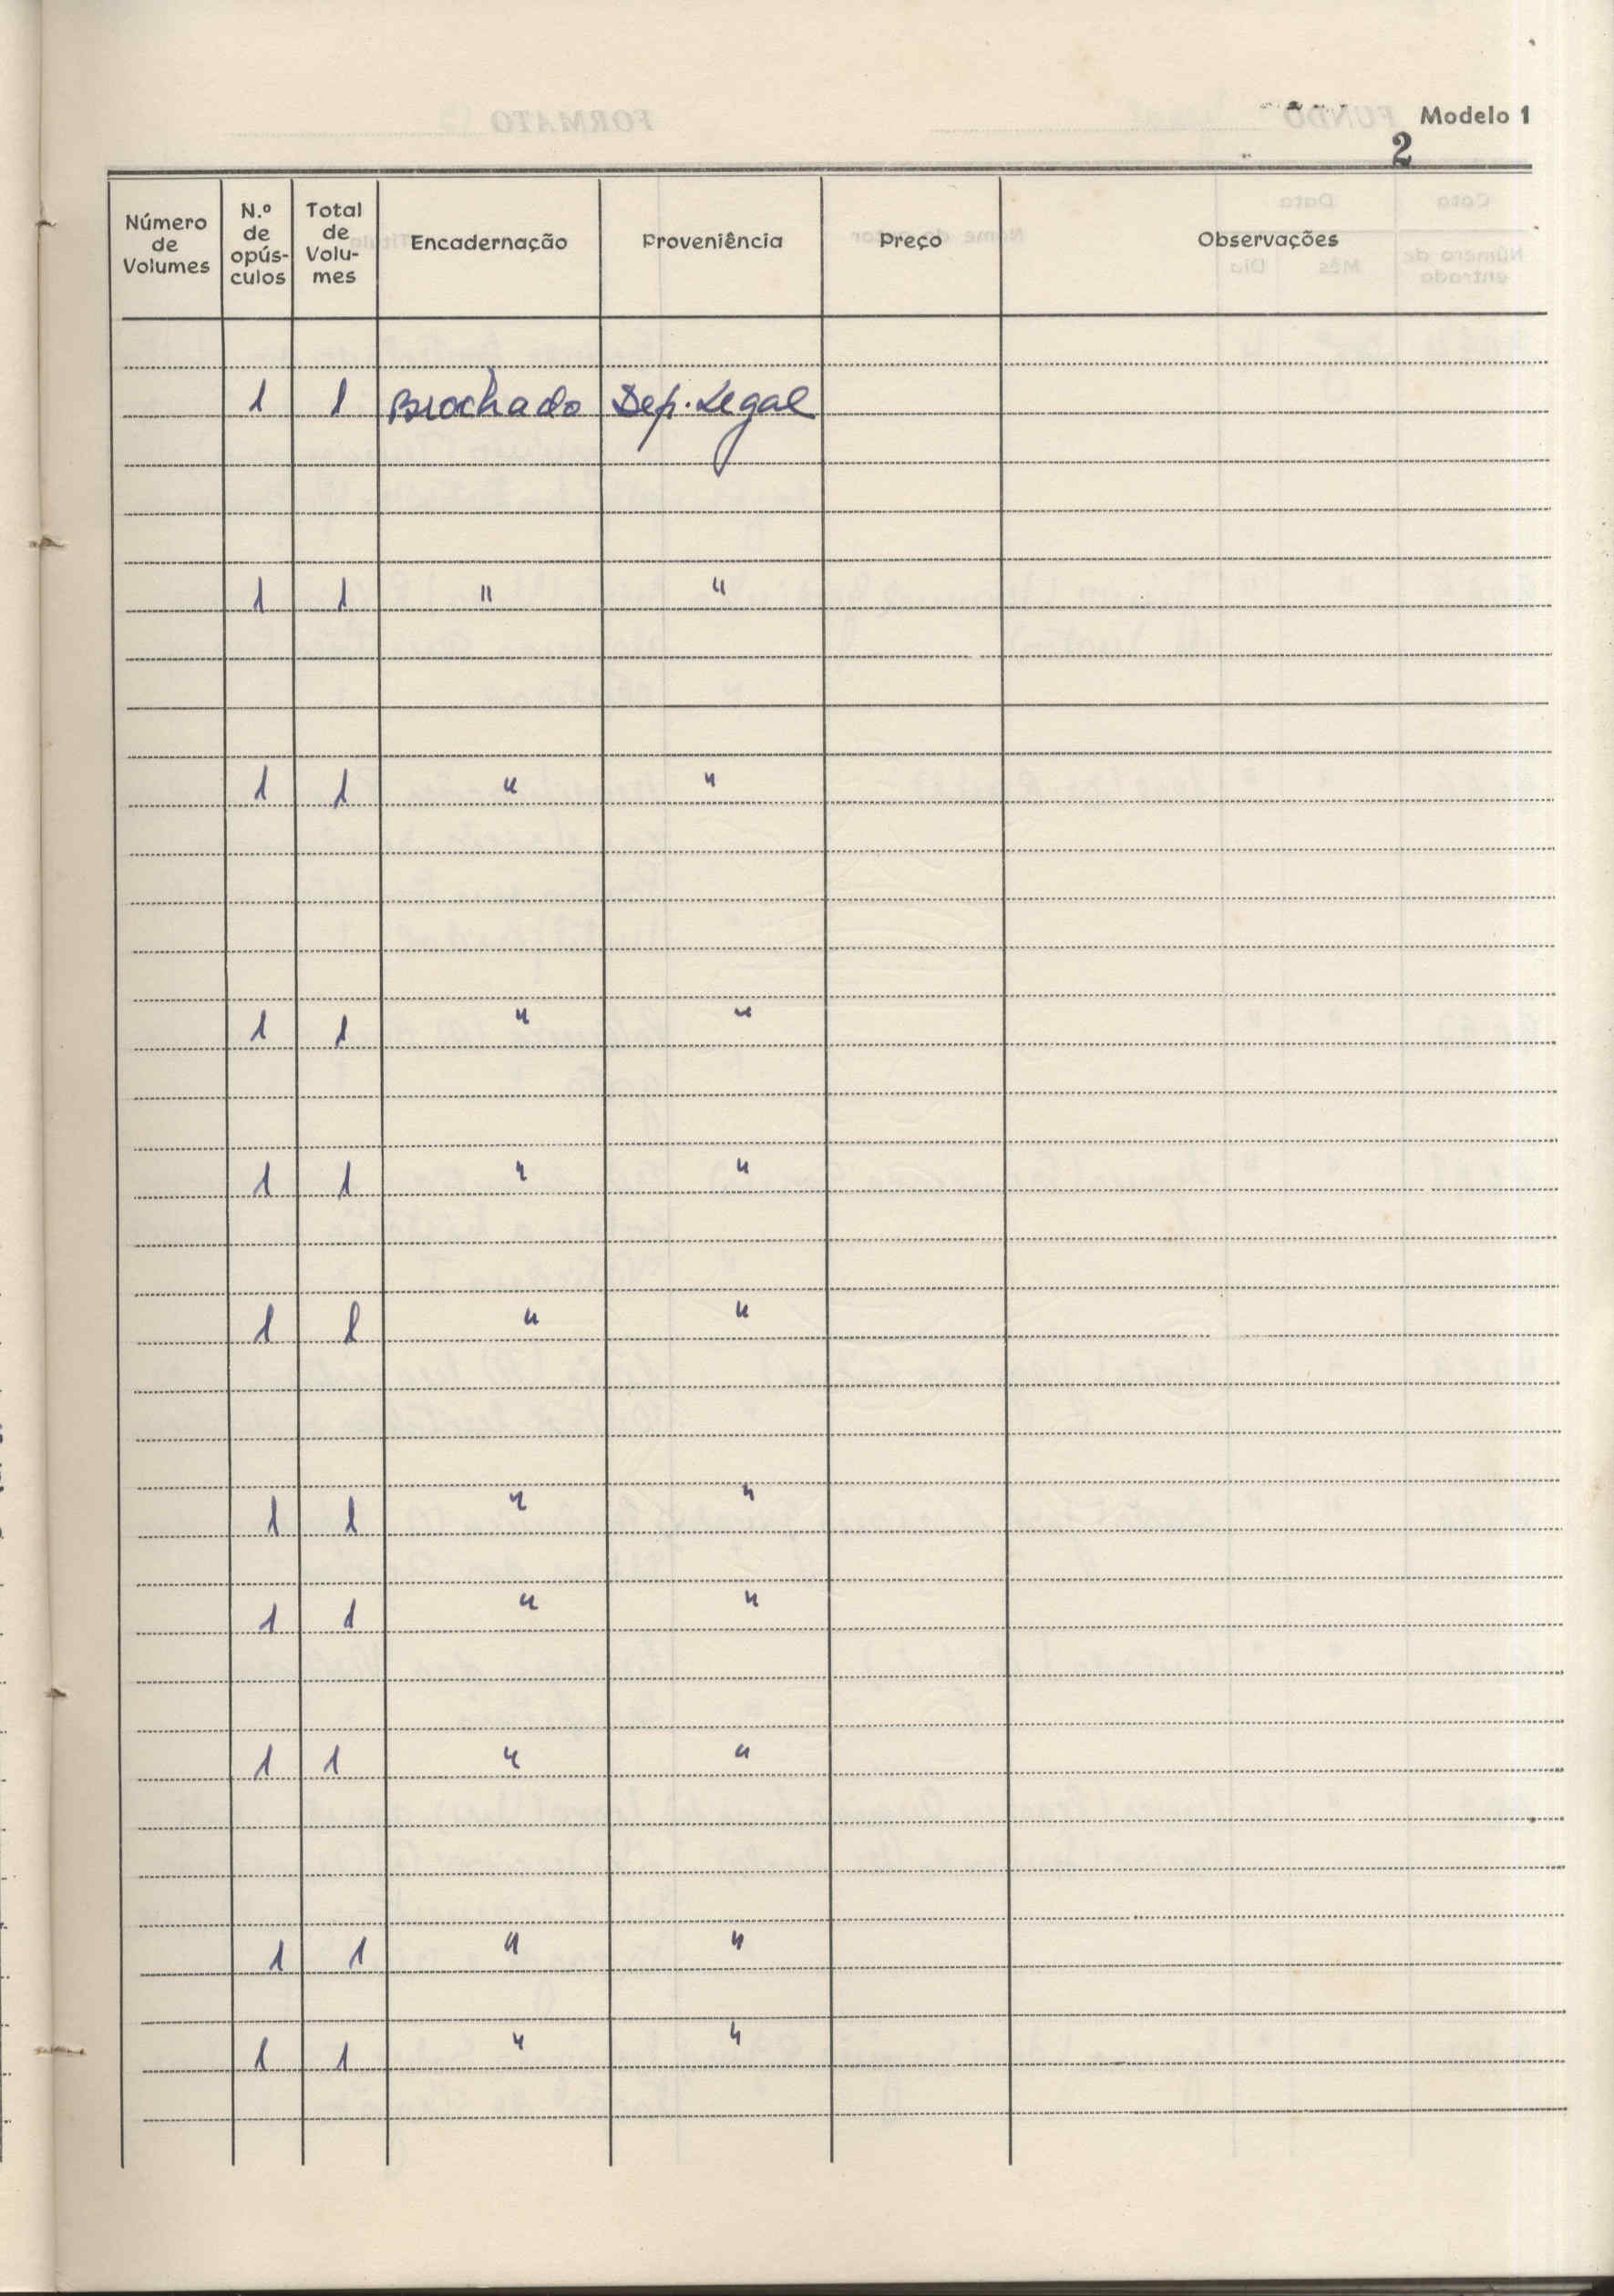 Modelo 1
2
Número de Volumes | N.º de opús-culos | Total de Volu-mes | Encadernação | Proveniência | Preço | Observações
1 1 Brochado Dep. Legal
1 1 " "
1 1 " "
1 1 " "
1 1 " "
1 1 " "
1 1 " "
1 1 " "
1 1 " "
1 1 " "
1 1 " "